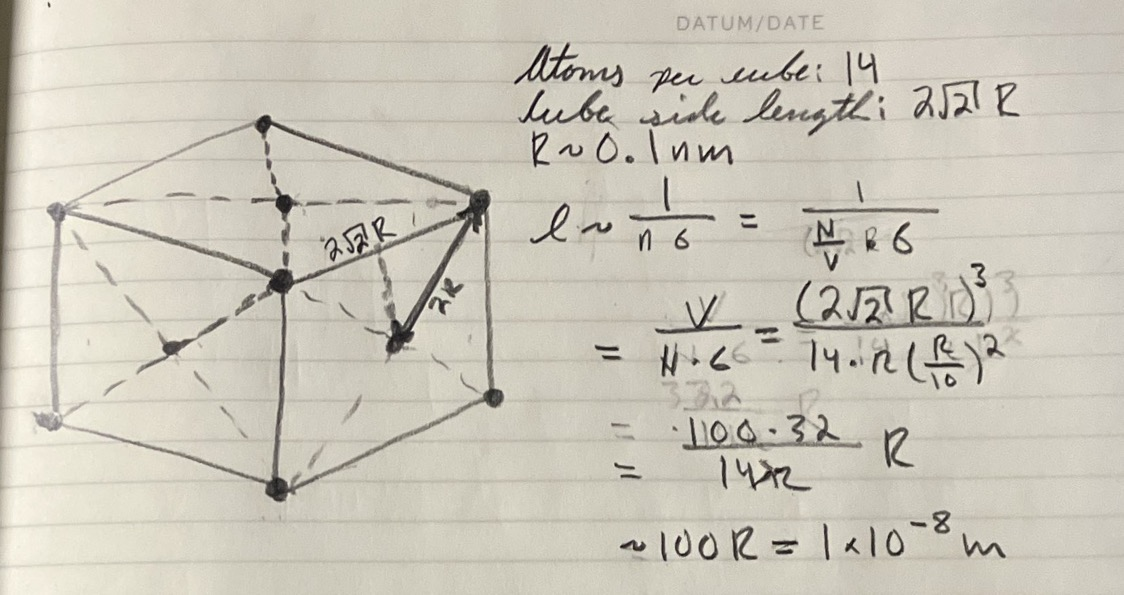 DATUM/DATE
Atoms per cube: 14
Cube side length: 2√2 R
R ~ 0.1nm
l ~ 1/(n σ) = 1/((N/V) σ)
= V/(N·σ) = (2√2 R)^3/(14·π (R/10)^2)
= 1100·32/(14π) R
=
~100R = 1×10^-8 m
2√2 R
2R